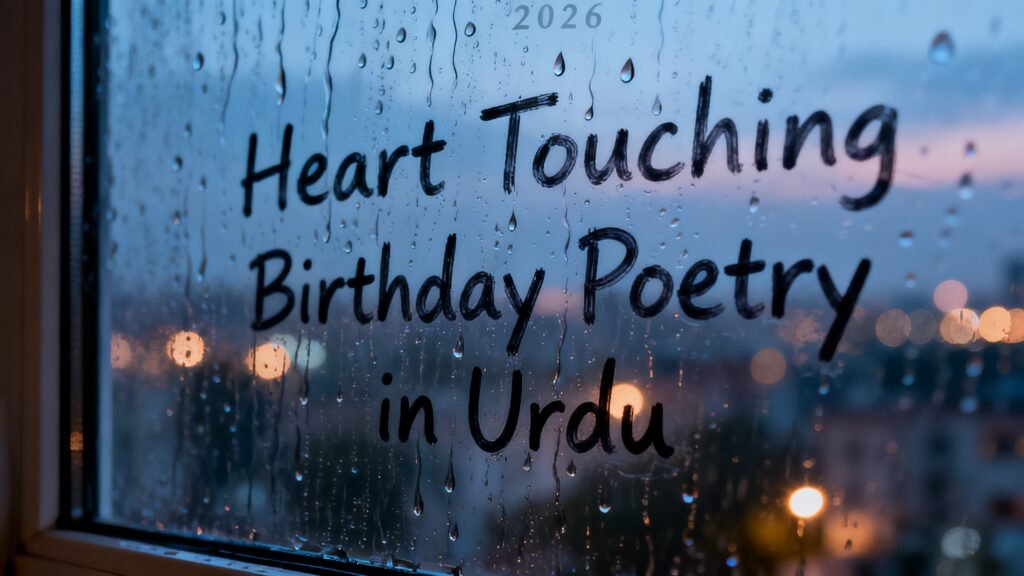 2026
Heart Touching
Birthday Poetry
in Urdu